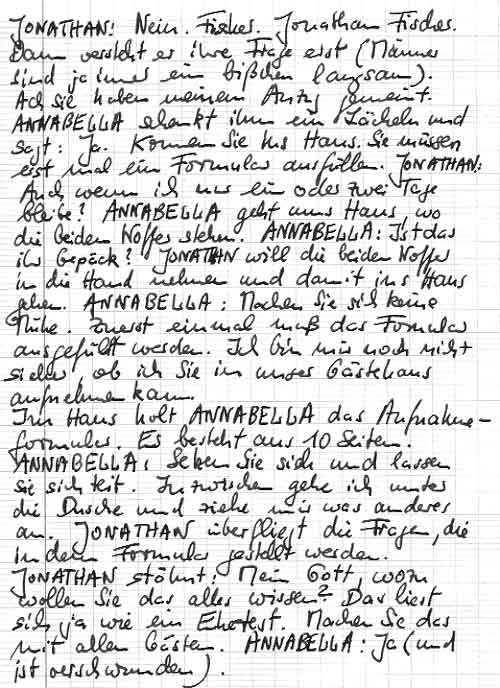 JONATHAN: Nein. Fischer. Jonathan Fischer.
Dann versteht er ihre Frage erst (Männer
sind ja immer ein bißchen langsam).
Ach sie haben meinem Anzug gemeint.
ANNABELLA schenkt ihm ein Lächeln und
sagt: Ja. Kommen Sie ins Haus. Sie müssen
erst mal ein Formular ausfüllen. JONATHAN:
Auch wenn ich nur ein oder zwei Tage
bleibe? ANNABELLA geht ums Haus, wo
die beiden Koffer stehen. ANNABELLA: Ist das
ihr Gepäck? JONATHAN will die beiden Koffer
in die Hand nehmen und damit ins Haus
gehen. ANNABELLA: Machen Sie sich keine
Mühe. Zuerst einmal muß das Formular
ausgefüllt werden. Ich bin mir noch nicht
sicher, ob ich Sie in unser Gästehaus
aufnehmen kann.
Im Haus holt ANNABELLA das Aufnahme-
formular. Es besteht aus 10 Seiten.
ANNABELLA: Setzen Sie sich und lassen
Sie sich Zeit. Inzwischen gehe ich unter
die Dusche und ziehe mir was anderes
an. JONATHAN überfliegt die Fragen, die
in dem Formular gestellt werden.
JONATHAN stöhnt: Mein Gott, wozu
wollen Sie das alles wissen? Das liest
sich ja wie ein Ehetest. Machen Sie das
mit allen Gästen. ANNABELLA: Ja (und
ist verschwunden).